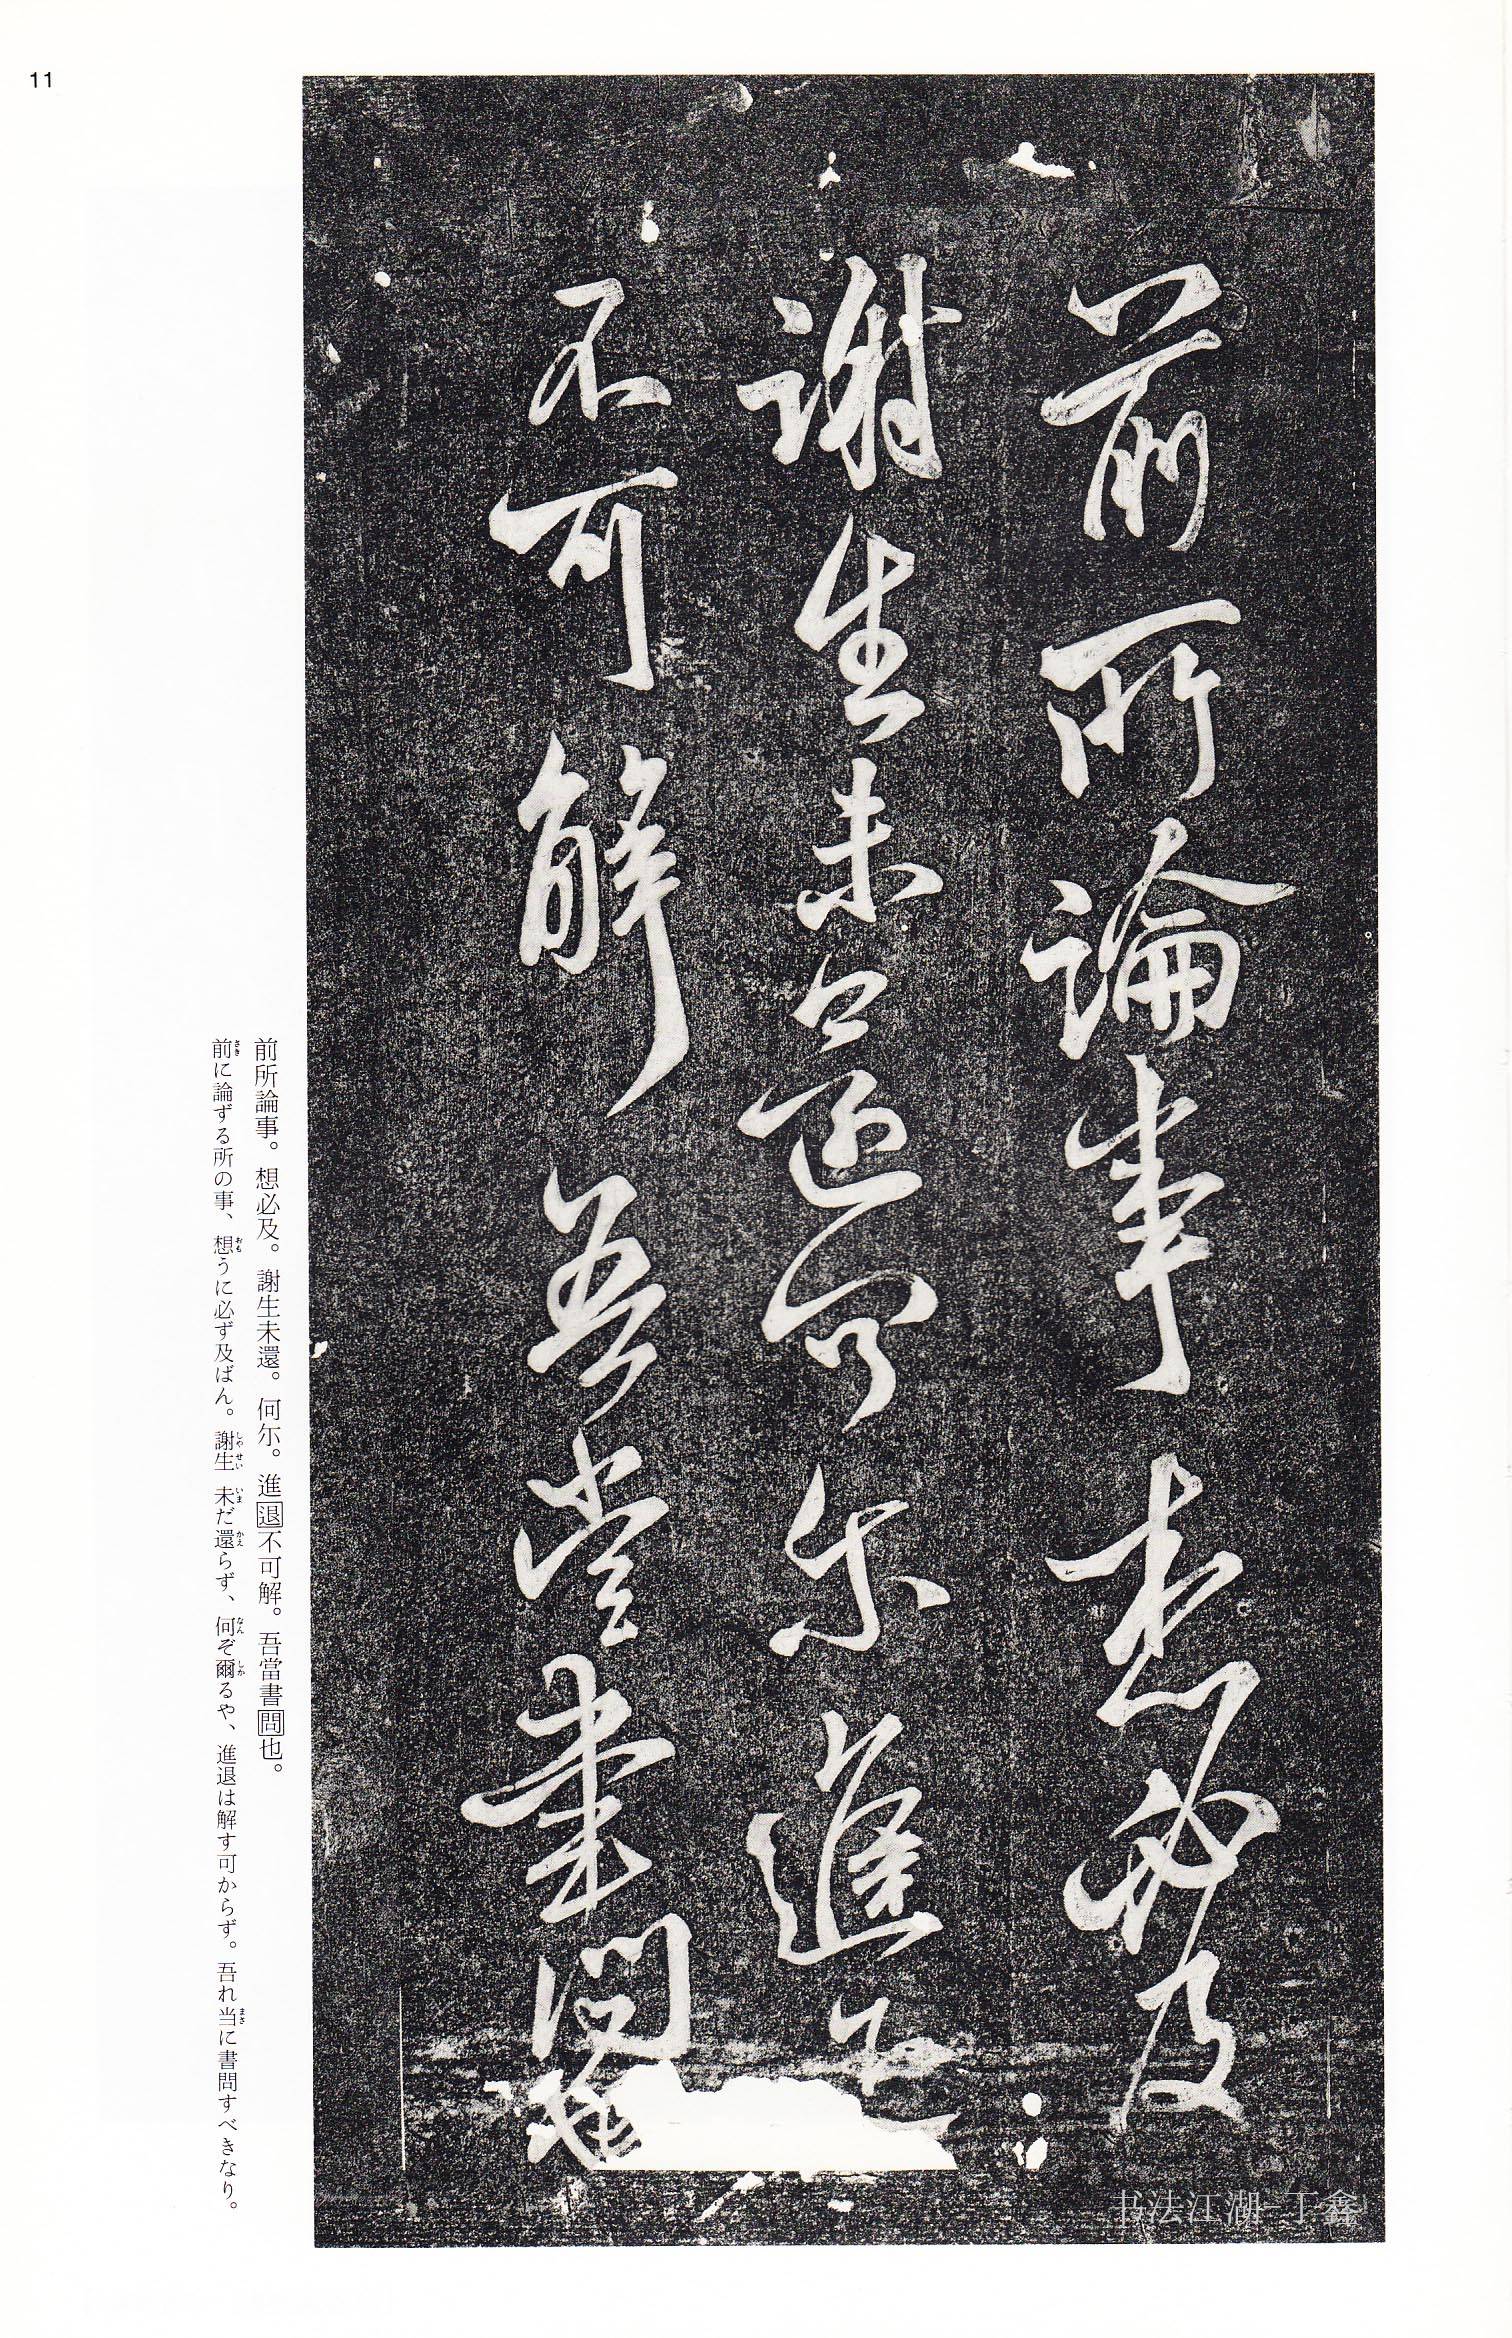 11
前所論事想必及
謝生未還何尔進退
不可解吾當書問也
前所論事。想必及。謝生未還。何尓。進退不可解。吾當書問也。
前に論ずる所の事、想うに必ず及ばん。謝生未だ還らず、何ぞ爾るや、進退は解す可からず。吾れ当に書問すべきなり。
书法江湖-丁鑫